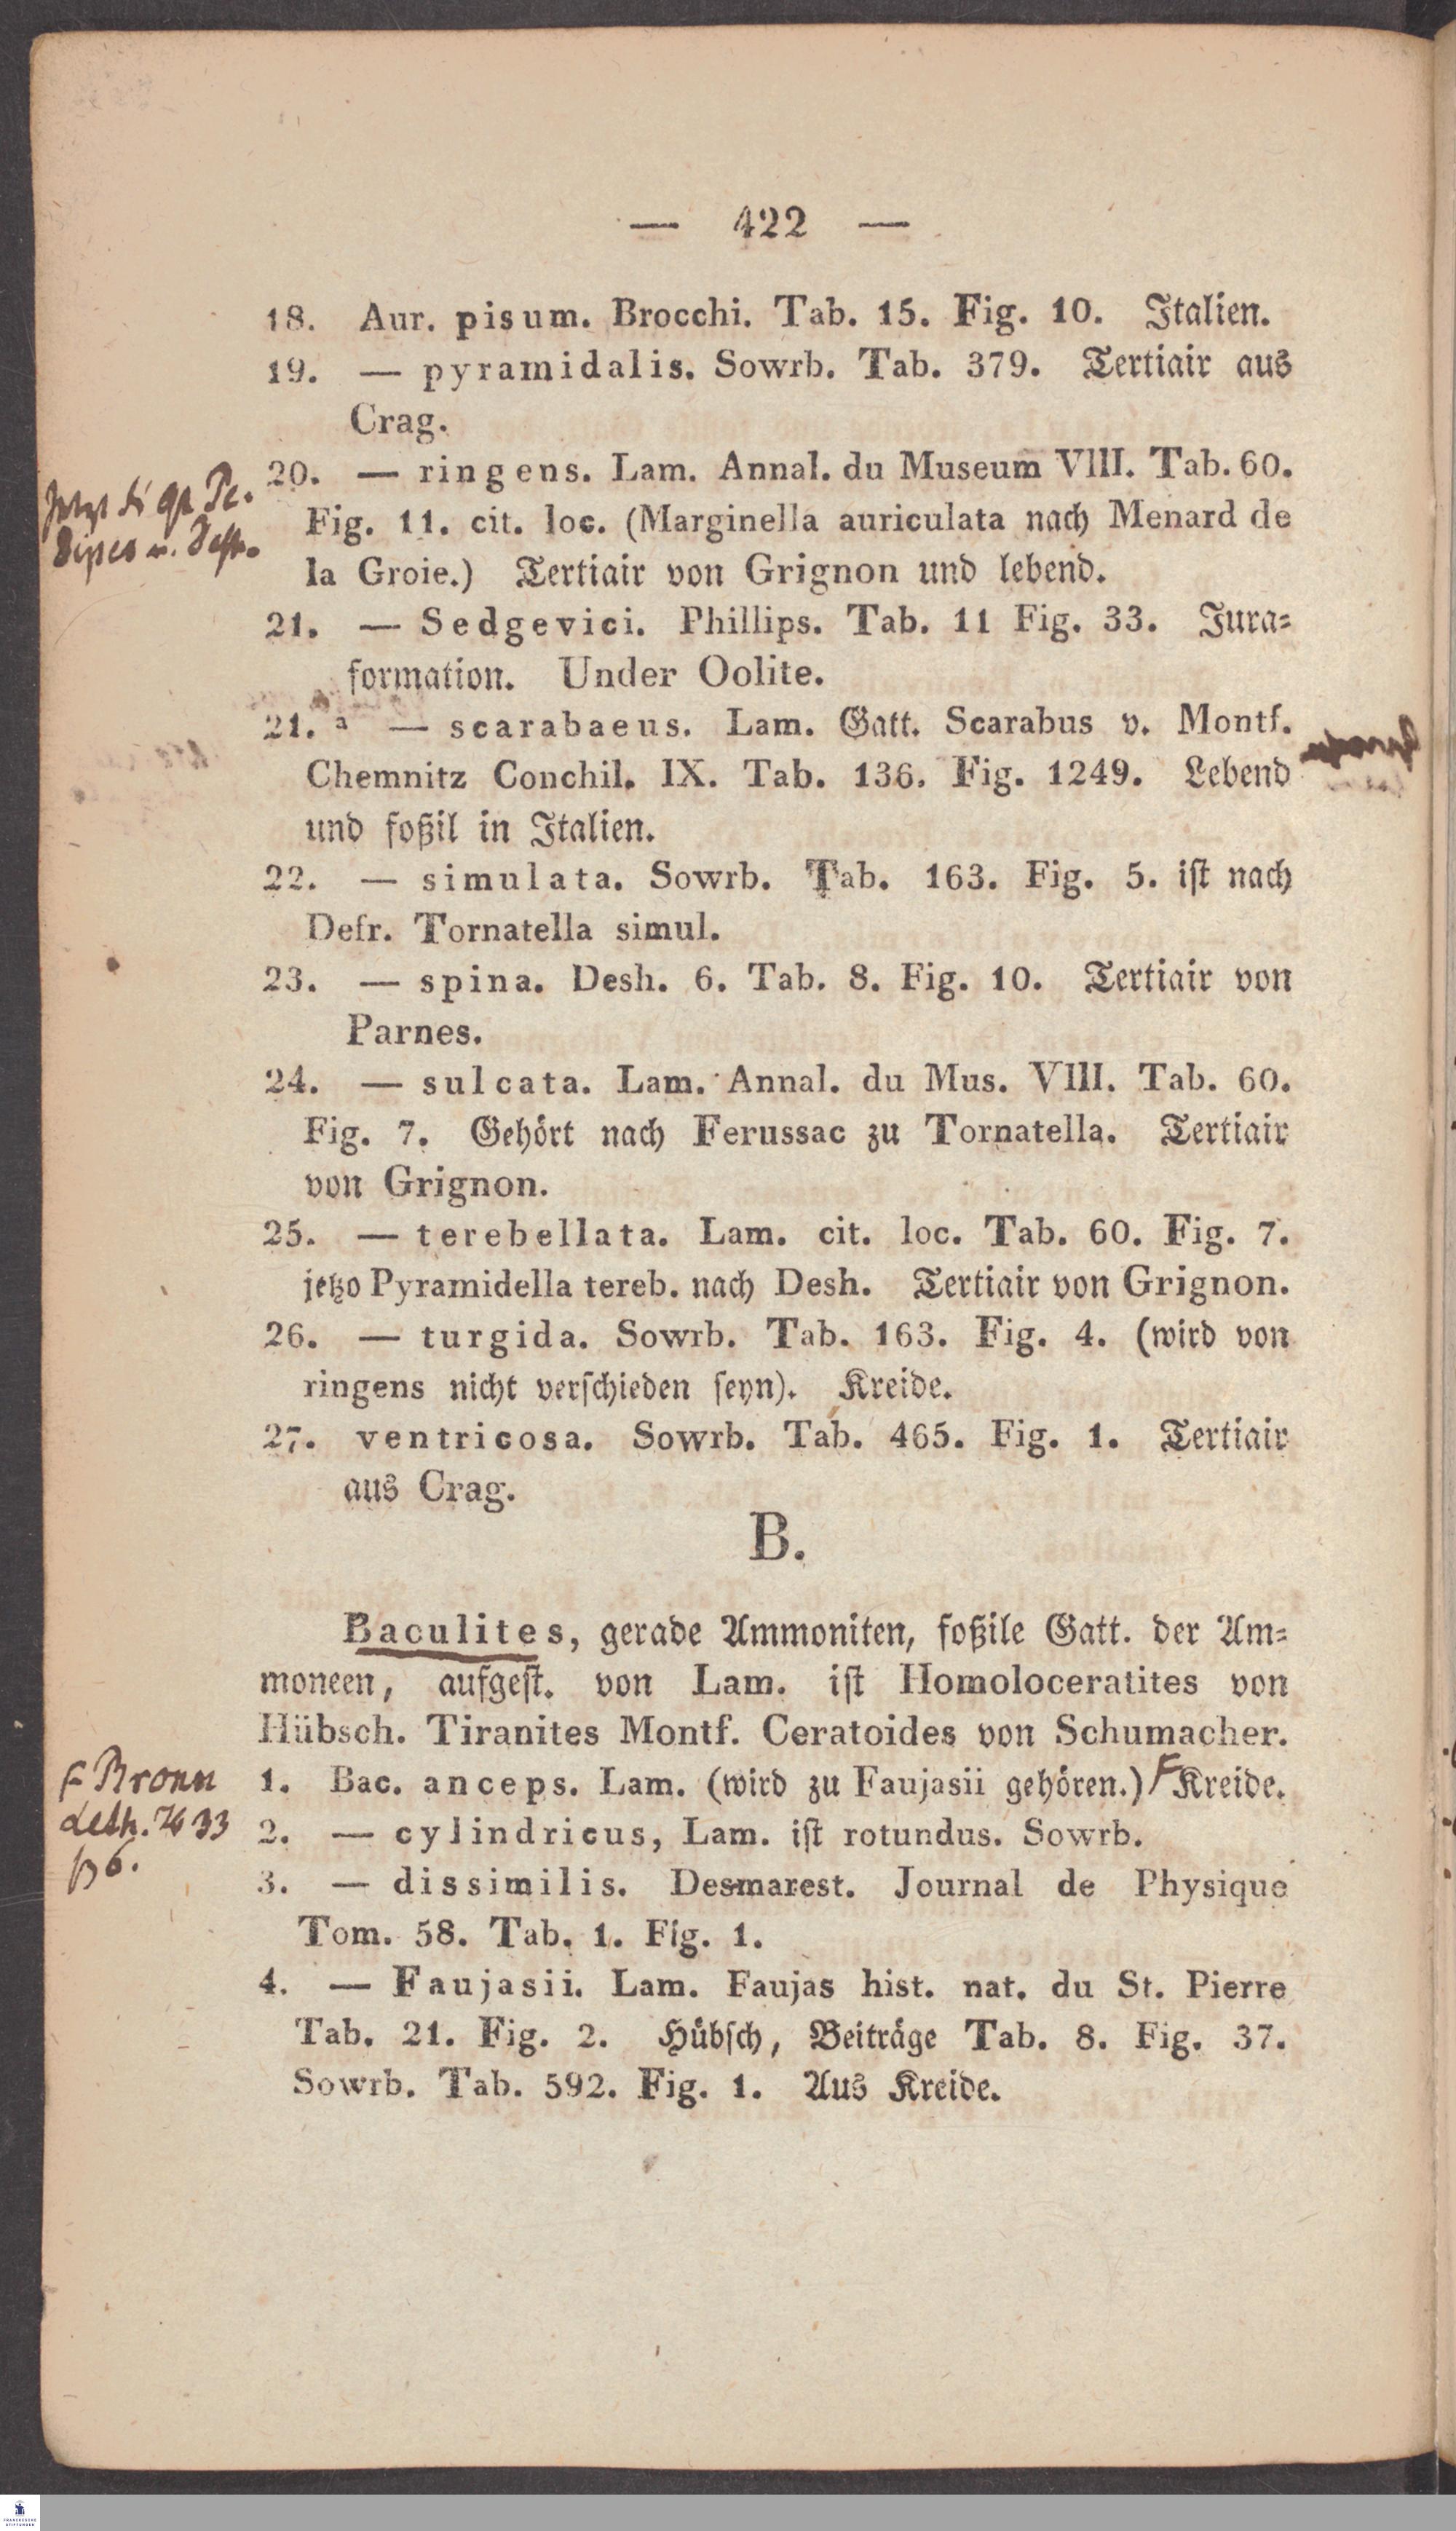 — 422 —
18. Aur. pisum. Brocchi. Tab. 15. Fig. 10. Italien.
19. — pyramidalis. Sowrb. Tab. 379. Tertiair aus
Crag.
20. — ringens. Lam. Annal. du Museum VIII. Tab. 60.
Fig. 11. cit. loc. (Marginella auriculata nach Menard de
la Groie.) Tertiair von Grignon und lebend.
21. — Sedgevici. Phillips. Tab. 11 Fig. 33. Jura-
formation. Under Oolite.
21. a — scarabaeus. Lam. Gatt. Scarabus v. Montf.
Chemnitz Conchil. IX. Tab. 136. Fig. 1249. Lebend
und foßil in Italien.
22. — simulata. Sowrb. Tab. 163. Fig. 5. ist nach
Defr. Tornatella simul.
23. — spina. Desh. 6. Tab. 8. Fig. 10. Tertiair von
Parnes.
24. — sulcata. Lam. Annal. du Mus. VIII. Tab. 60.
Fig. 7. Gehört nach Ferussac zu Tornatella. Tertiair
von Grignon.
25. — terebellata. Lam. cit. loc. Tab. 60. Fig. 7.
jetzo Pyramidella tereb. nach Desh. Tertiair von Grignon.
26. — turgida. Sowrb. Tab. 163. Fig. 4. (wird von
ringens nicht verschieden seyn). Kreide.
27. ventricosa. Sowrb. Tab. 465. Fig. 1. Tertiair
aus Crag.
B.
Baculites, gerade Ammoniten, foßile Gatt. der Am-
moneen, aufgest. von Lam. ist Homoloceratites von
Hübsch. Tiranites Montf. Ceratoides von Schumacher.
1. Bac. anceps. Lam. (wird zu Faujasii gehören.) F Kreide.
2. — cylindricus, Lam. ist rotundus. Sowrb.
3. — dissimilis. Desmarest. Journal de Physique
Tom. 58. Tab. 1. Fig. 1.
4. — Faujasii. Lam. Faujas hist. nat. du St. Pierre
Tab. 21. Fig. 2. Hübsch, Beiträge Tab. 8. Fig. 37.
Sowrb. Tab. 592. Fig. 1. Aus Kreide.
F Bronn
Leth. 33
6.
FRANCKESCHE
STIFTUNGEN